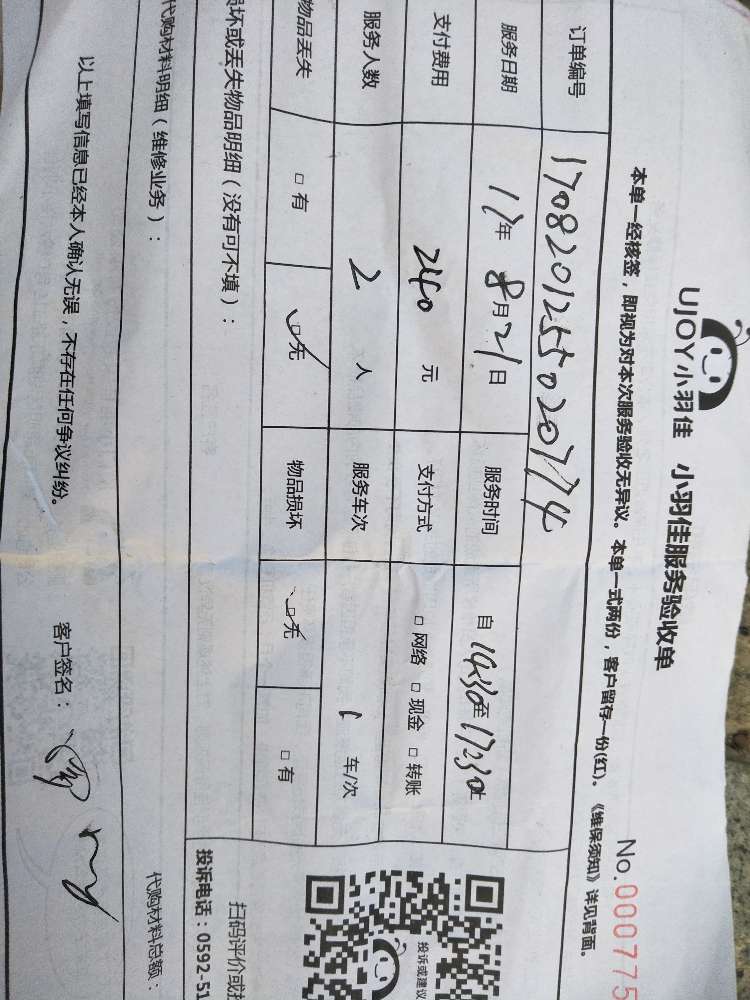 UJOY小羽佳 小羽佳服务验收单
No.000775
本单一经核签，即视为对本次服务验收无异议。本单一式两份，客户留存一份(红)。《维保须知》详见背面。
订单编号 1708201255020774
服务日期 17年 8月21日 服务时间 自 14:30至 17:30止
支付费用 240 元 支付方式 □ 网络 □ 现金 □ 转账
服务人数 2 人 服务车次 1 车/次
物品丢失 □ 有 □无 物品损坏 □无 □ 有
坏或丢失物品明细（没有可不填）：
代购材料明细（维修业务）：
代购材料总额：
以上填写信息已经本人确认无误，不存在任何争议纠纷。 客户签名：
投诉或建议
扫码评价或
投诉电话：0592-51